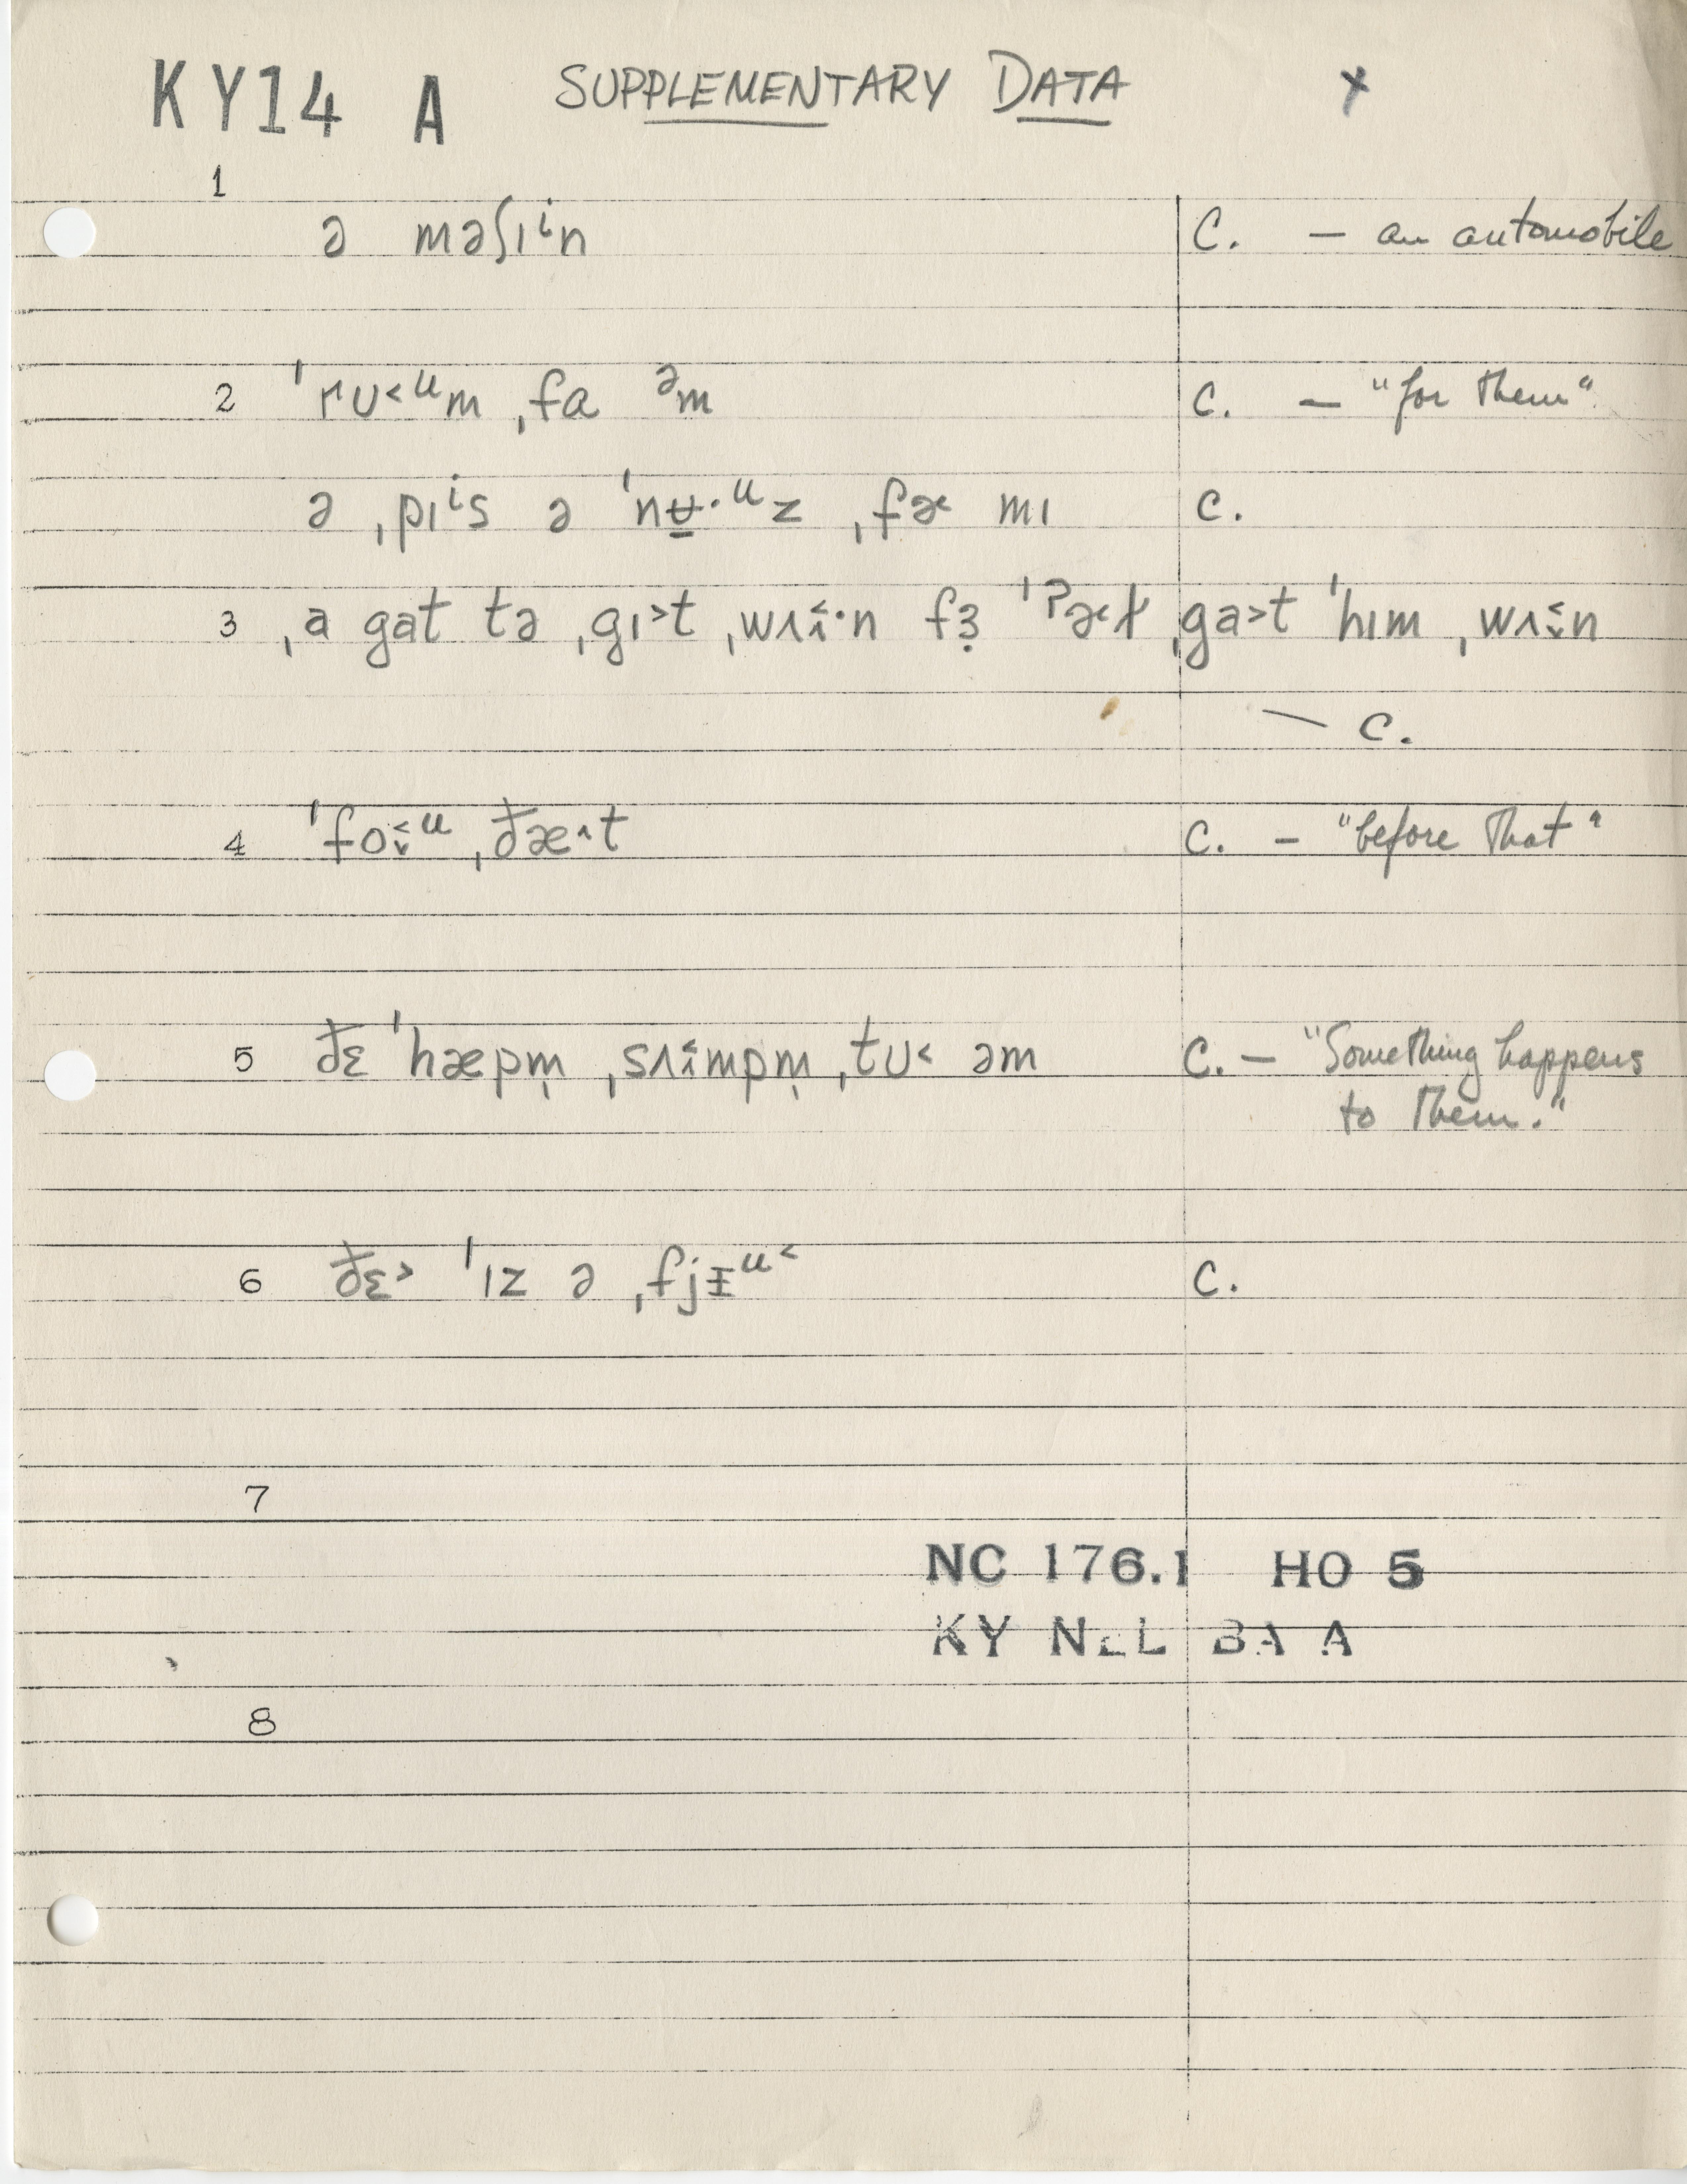 KY14 A SUPPLEMENTARY DATA x
1
ə məʃɪⁱn C. – an automobile
2 ˈrʊ˂ᵘm ˌfɑ ᵊm C. – "for them"
ə ˌpɪⁱs ə ˈnʉ̱·ᵘz ˌfɚ mɪ C.
3 ˌa gat tə ˌgɪ˃t ˌwʌ˂̂·n fɜ̣ ˌga˃t ˈhɪm ˌwʌ˂̬n
– C.
4 ˈfo˂̬ᵘ ˌđæ^t C. – "before that"
5 đɛ ˈhæpm̩ ˌsʌ˂̂mpm̩ ˌtʊ˂ əm C. – "Something happens
to them."
6 đɛ˃ ˈɪz ə ˌfjɪ̵ᵘ˂ C.
7
NC 176.1 HO 5
KY NEL BA A
8